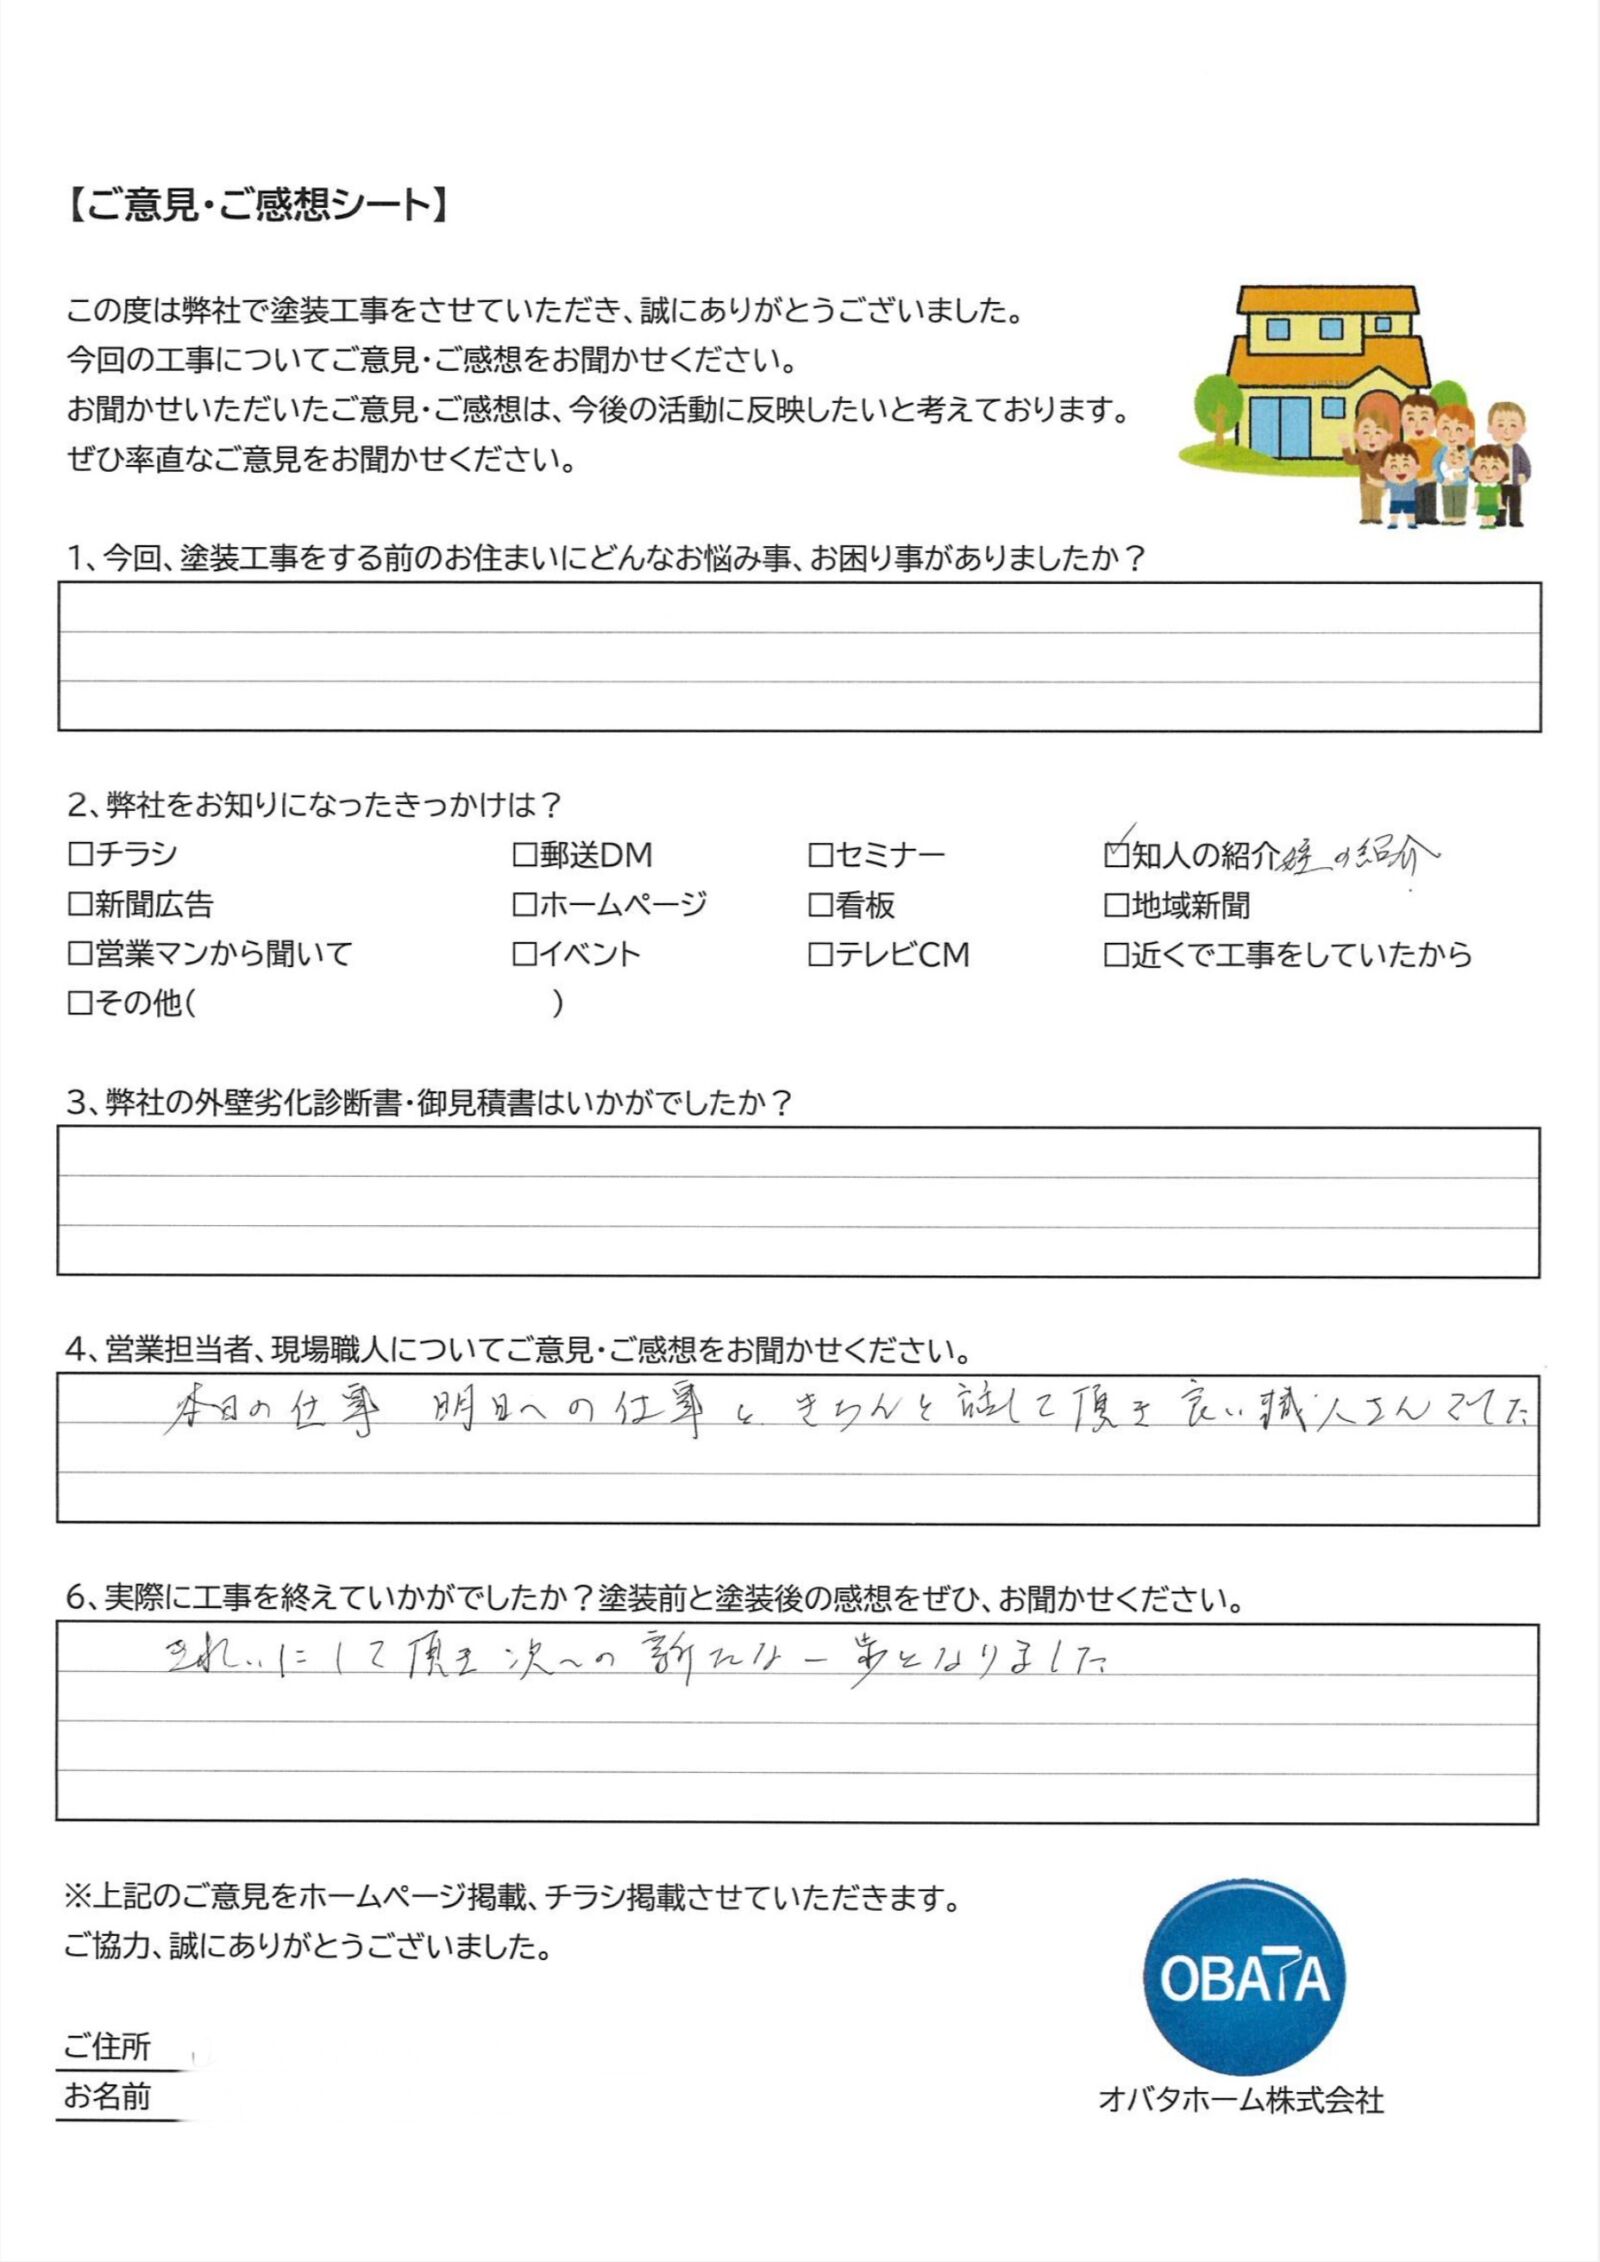 【ご意見・ご感想シート】
この度は弊社で塗装工事をさせていただき、誠にありがとうございました。
今回の工事についてご意見・ご感想をお聞かせください。
お聞かせいただいたご意見・ご感想は、今後の活動に反映したいと考えております。
ぜひ率直なご意見をお聞かせください。
1、今回、塗装工事をする前のお住まいにどんなお悩み事、お困り事がありましたか？
2、弊社をお知りになったきっかけは？
□チラシ □郵送DM □セミナー ☑知人の紹介 姪の紹介
□新聞広告 □ホームページ □看板 □地域新聞
□営業マンから聞いて □イベント □テレビCM □近くで工事をしていたから
□その他( )
3、弊社の外壁劣化診断書・御見積書はいかがでしたか？
4、営業担当者、現場職人についてご意見・ご感想をお聞かせください。
本日の仕事 明日への仕事と きちんと話して頂き 良い職人さんでした
6、実際に工事を終えていかがでしたか？塗装前と塗装後の感想をぜひ、お聞かせください。
きれいにして頂き 次への 新たな一歩となりました
※上記のご意見をホームページ掲載、チラシ掲載させていただきます。
ご協力、誠にありがとうございました。
OBATA
ご住所
お名前
オバタホーム株式会社